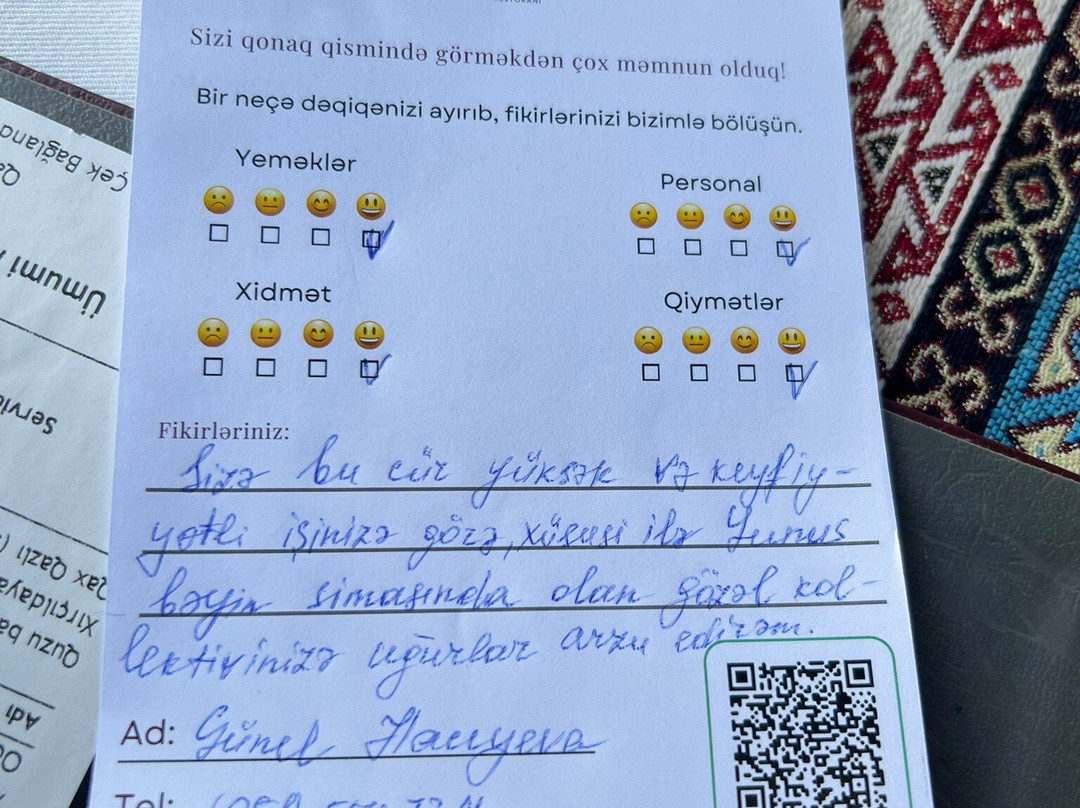 Sizi qonaq qismində görməkdən çox məmnun olduq!
Bir neçə dəqiqənizi ayırıb, fikirlərinizi bizimlə bölüşün.
Yeməklər
Personal
Xidmət
Qiymətlər
Fikirləriniz:
Sizə bu cür yüksək və keyfiy-
yətli işinizə görə, xüsusi ilə Yunus
bəyin simasında olan gözəl kol-
lektivinizə uğurlar arzu edirəm.
Ad: Günel
Tel:
Çek Bağlana
Ümumi
Servi
Qax Qazlı
Xırçıldaya
Quzu ba
Adı